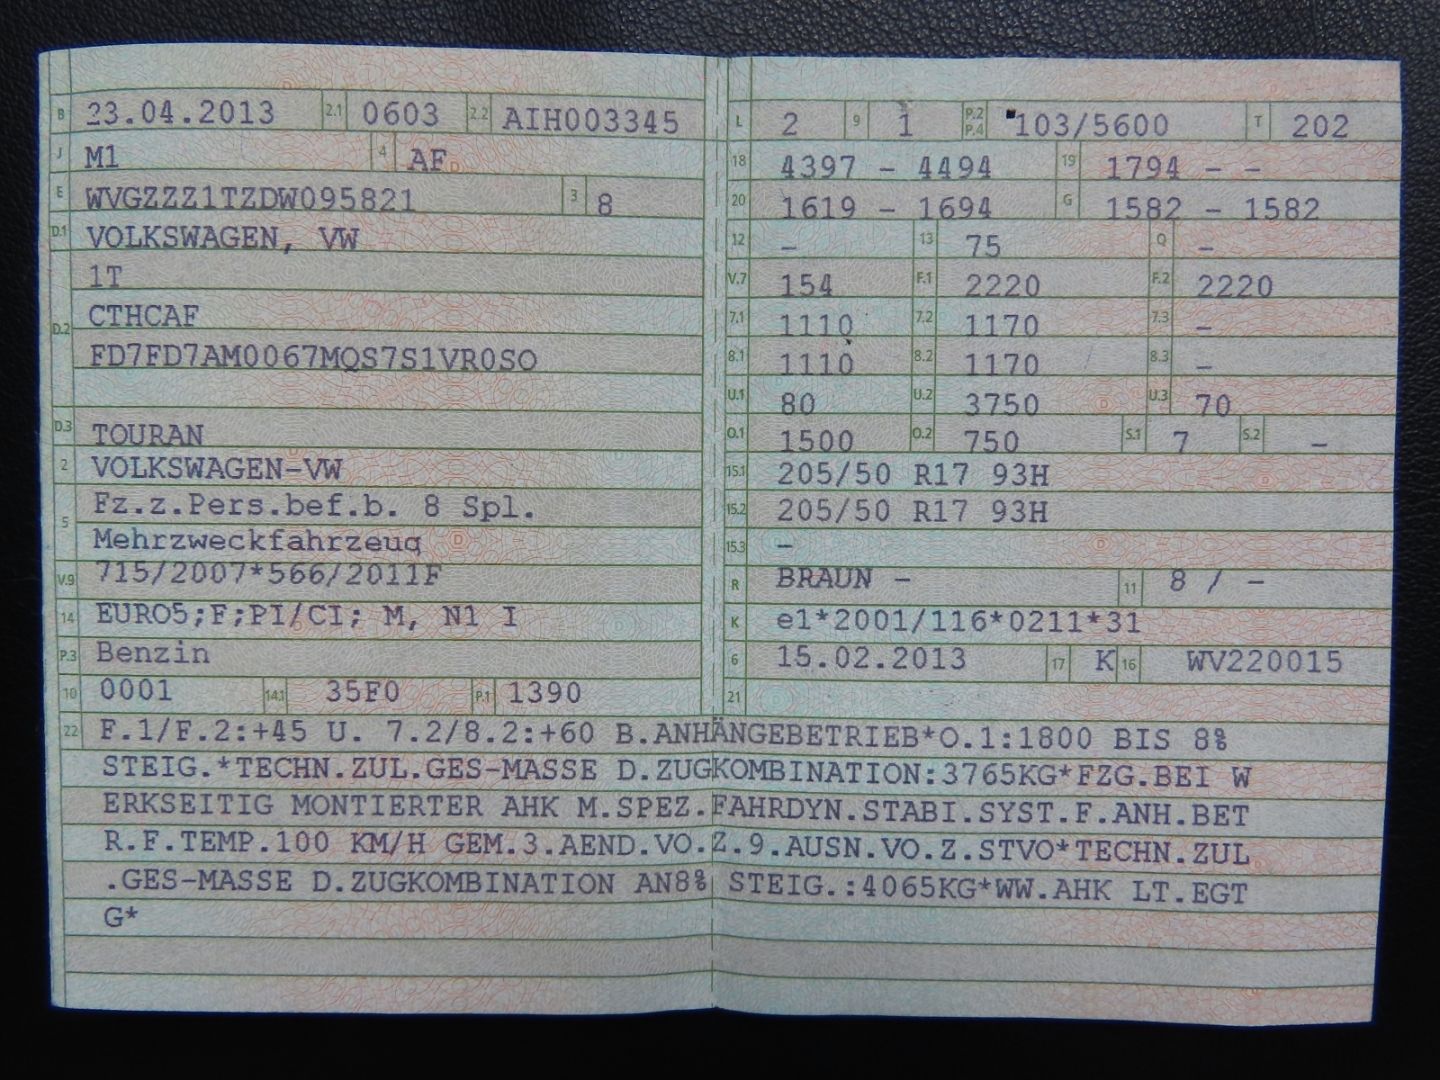 B 23.04.2013 2.1 0603 2.2 AIH003345
J M1 4 AF
E WVGZZZ1TZDW095821 3 8
D.1 VOLKSWAGEN, VW
1T
D.2 CTHCAF
FD7FD7AM0067MQS7S1VR0SO
D.3 TOURAN
2 VOLKSWAGEN-VW
5 Fz.z.Pers.bef.b. 8 Spl.
Mehrzweckfahrzeug
V.9 715/2007*566/2011F
14 EURO5;F;PI/CI; M, N1 I
P.3 Benzin
10 0001 14.1 35F0 P.1 1390
L 2 9 1 P.2 P.4 103/5600 T 202
18 4397 - 4494 19 1794 - -
20 1619 - 1694 G 1582 - 1582
12 - 13 75 Q -
V.7 154 F.1 2220 F.2 2220
7.1 1110 7.2 1170 7.3 -
8.1 1110 8.2 1170 8.3 -
U.1 80 U.2 3750 U.3 70
O.1 1500 O.2 750 S.1 7 S.2 -
15.1 205/50 R17 93H
15.2 205/50 R17 93H
15.3 -
R BRAUN - 11 8 / -
K e1*2001/116*0211*31
6 15.02.2013 17 K 16 WV220015
21
22 F.1/F.2:+45 U. 7.2/8.2:+60 B.ANHÄNGEBETRIEB*O.1:1800 BIS 8%
STEIG.*TECHN.ZUL.GES-MASSE D.ZUGKOMBINATION:3765KG*FZG.BEI W
ERKSEITIG MONTIERTER AHK M.SPEZ.FAHRDYN.STABI.SYST.F.ANH.BET
R.F.TEMP.100 KM/H GEM.3.AEND.VO.Z.9.AUSN.VO.Z.STVO*TECHN.ZUL
.GES-MASSE D.ZUGKOMBINATION AN8% STEIG.:4065KG*WW.AHK LT.EGT
G*